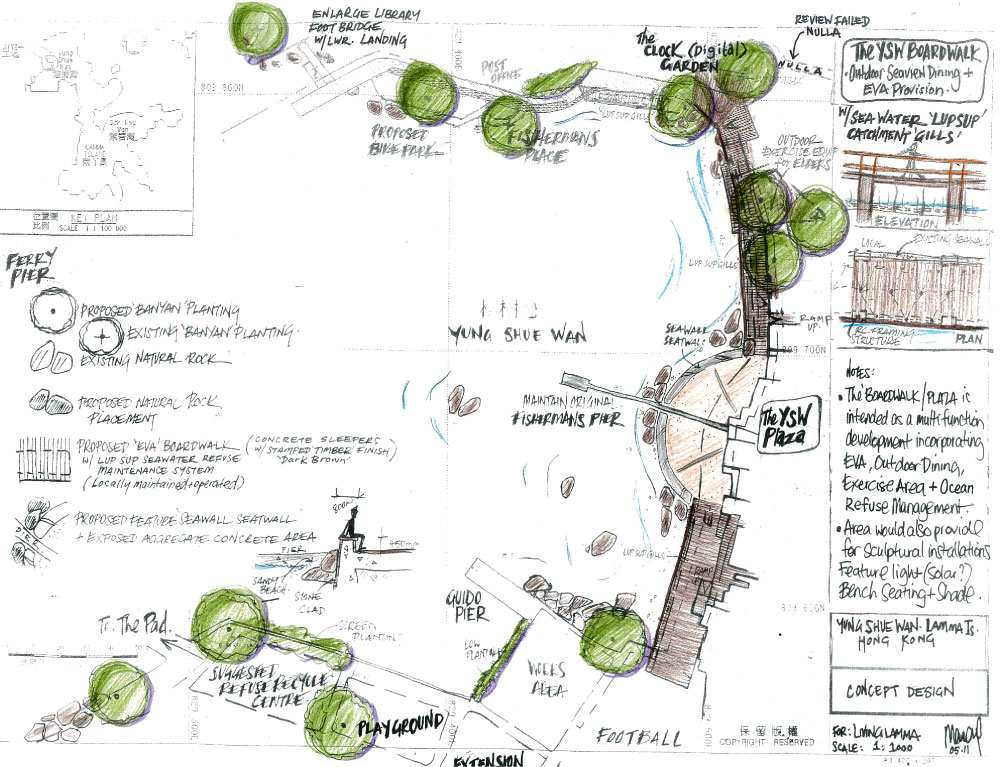 ENLARGE LIBRARY
FOOT BRIDGE
W/LWR. LANDING
The
CLOCK (Digital)
GARDEN
REVIEW FAILED
NULLA
NULLA
POST
OFFICE
LUPSUP GILLS
PROPOSED
BIKE PARK
FISHERMANS
PLACE
OUTDOOR
EXERCISE EQUIP
for ELDERS
LUP SUP GILLS
RAMP
UP.
809 800N
The YSW BOARDWALK
·Outdoor Seaview Dining +
EVA Provision.
W/ SEA WATER 'LUPSUP'
CATCHMENT 'GILLS'
ELEVATION
LOCAL
EXISTING SEAWALL
RC FRAMING
STRUCTURE
PLAN
位置圖 KEY PLAN
比例 SCALE 1 : 100 000
LAMMA
ISLAND
FERRY
PIER
PROPOSED 'BANYAN' PLANTING
EXISTING 'BANYAN' PLANTING.
EXISTING NATURAL ROCK
PROPOSED NATURAL ROCK
PLACEMENT
PROPOSED 'EVA' BOARDWALK (CONCRETE SLEEPERS
W/ LUP SUP SEAWATER REFUSE W/STAMPED TIMBER FINISH)
MAINTENANCE SYSTEM 'Dark Brown'
(Locally maintained + operated)
PROPOSED FEATURE 'SEAWALL SEATWALL'
+ EXPOSED AGGREGATE CONCRETE AREA
PIER
PIER
SANDY
BEACH
STONE
CLAD
YUNG SHUE WAN
SEAWALL
SEATWALL
809 700N
MAINTAIN ORIGINAL
FISHERMANS PIER
The YSW
Plaza
LUPSUP GILLS
809 600N
NOTES:
• The BOARDWALK/PLAZA is
intended as a multi function
development incorporating
EVA, Outdoor Dining,
Exercise Area + Ocean
Refuse Management.
• Area would also provide
for sculptural installations
Feature light (Solar?)
Bench Seating + Shade.
To The Pad.
GREEN
PLANTING
SUGGESTED
REFUSE RECYCLE
CENTRE
PLAYGROUND
GUIDO
PIER
LOW
PLANTING
WORKS
AREA
FOOTBALL
EXTENSION
保留版權
COPYRIGHT RESERVED
YUNG SHUE WAN. LAMMA IS.
HONG KONG
CONCEPT DESIGN
FOR: LIVING LAMMA
SCALE: 1:1000
05.11